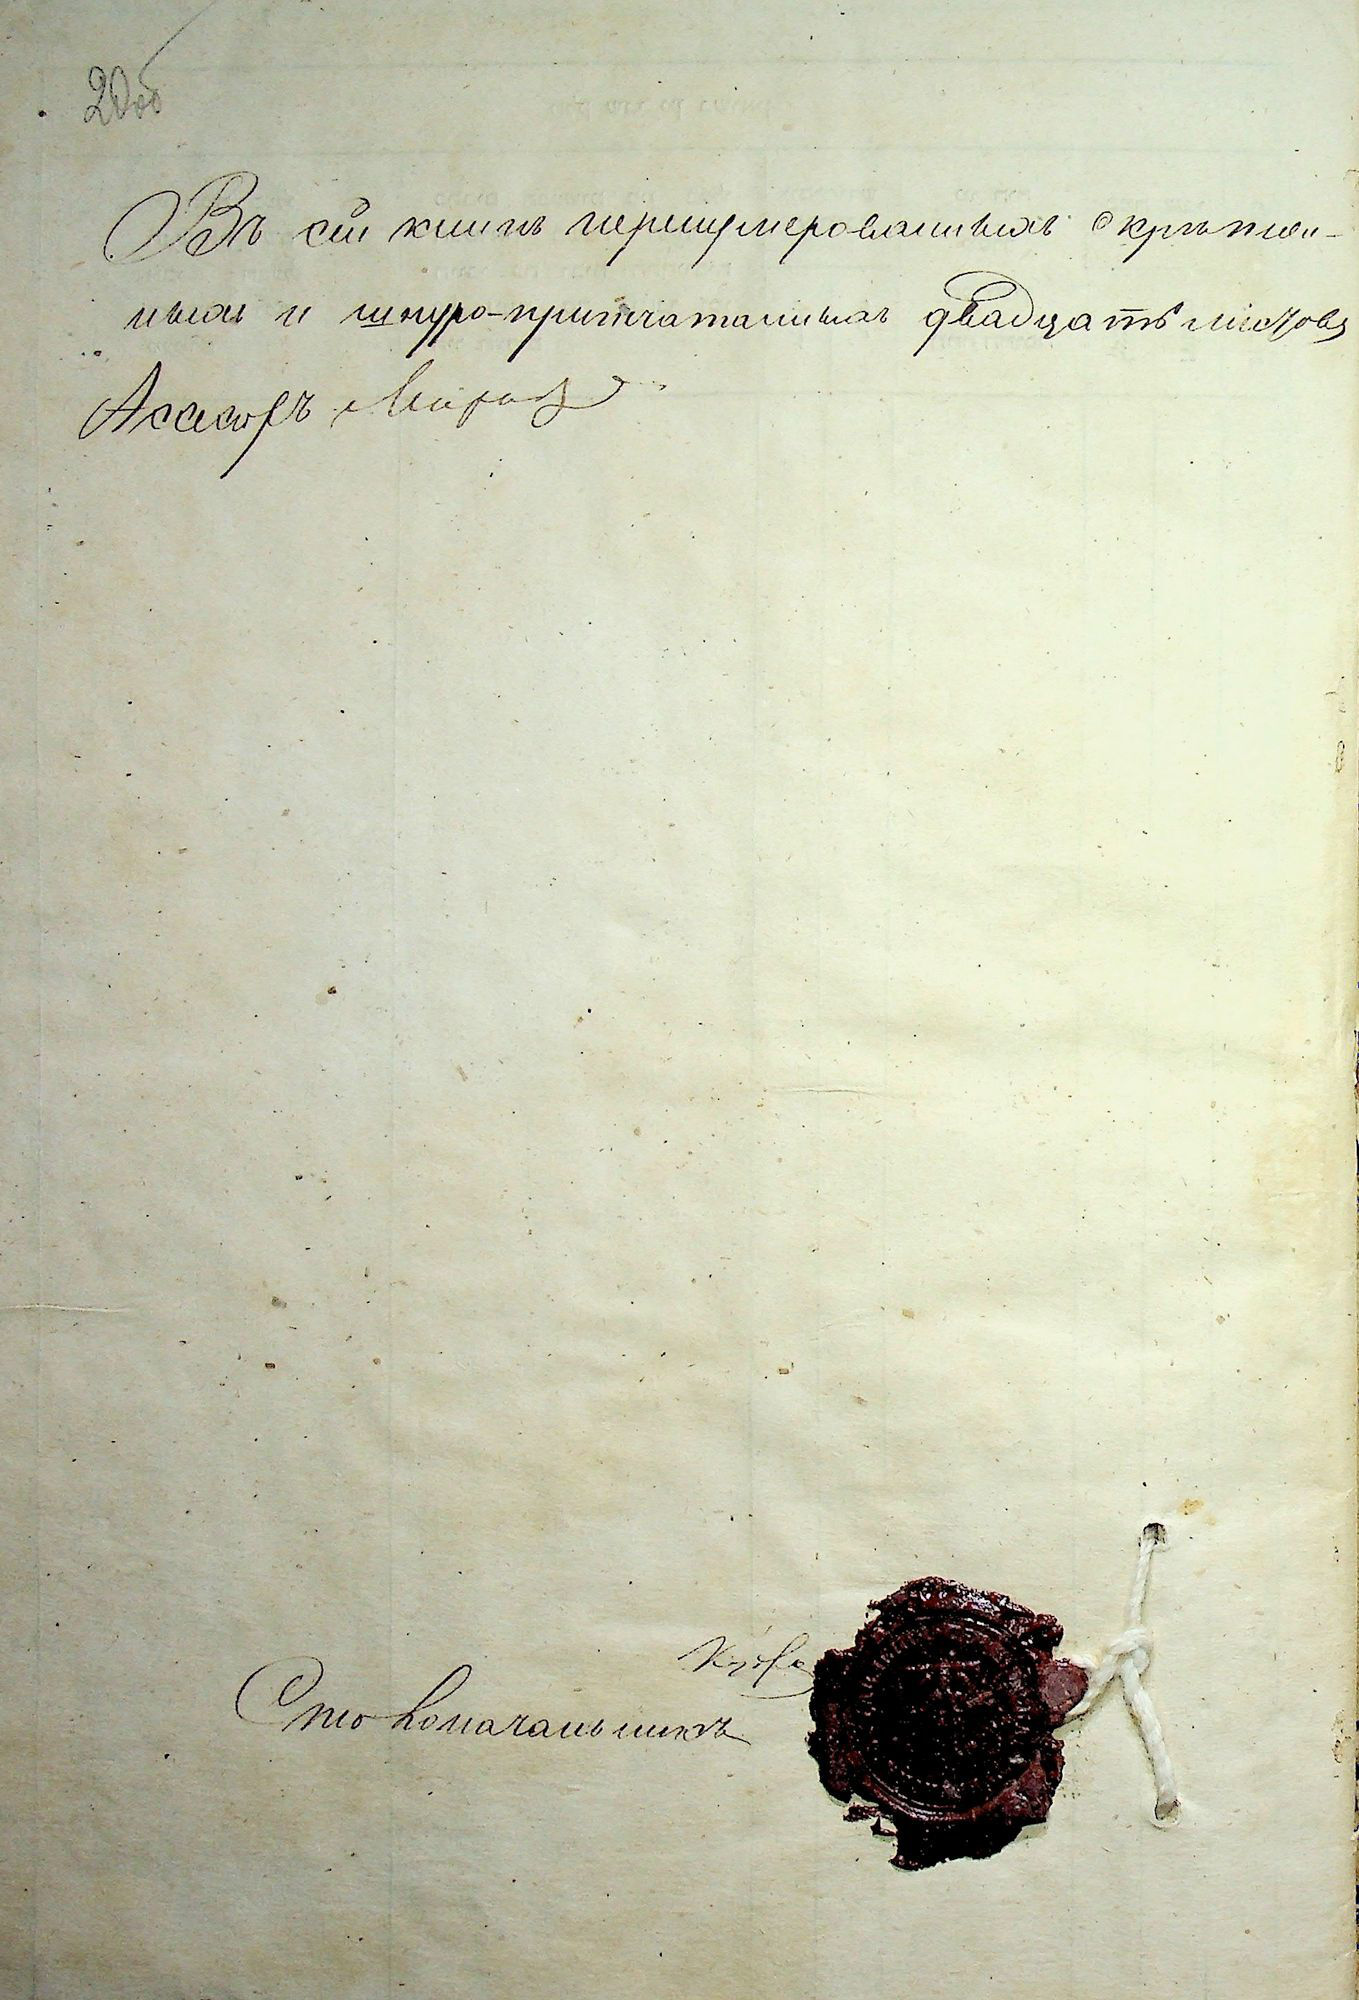 20об
Въ сей книгѣ перенумерованныхъ скрѣплен-
ныхъ и шнуро-припечатанныхъ двадцать листовъ
Асесоръ
Столоначальникъ